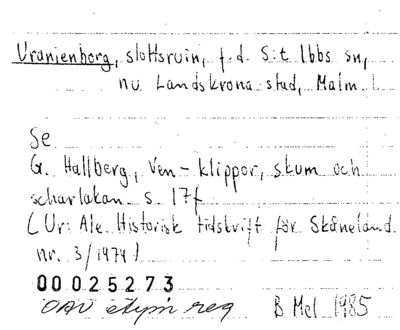 Uranienborg, slottsruin, f.d. S:t Ibbs sn,
nu Landskrona stad, Malm. l.
Se
G. Hallberg, Ven - klippor, skum och
scharlakan s 17f
(Ur: Ale. Historisk tidskrift för Skåneland.
nr. 3/1974)
00025273
OAU etym reg B Mel 1985